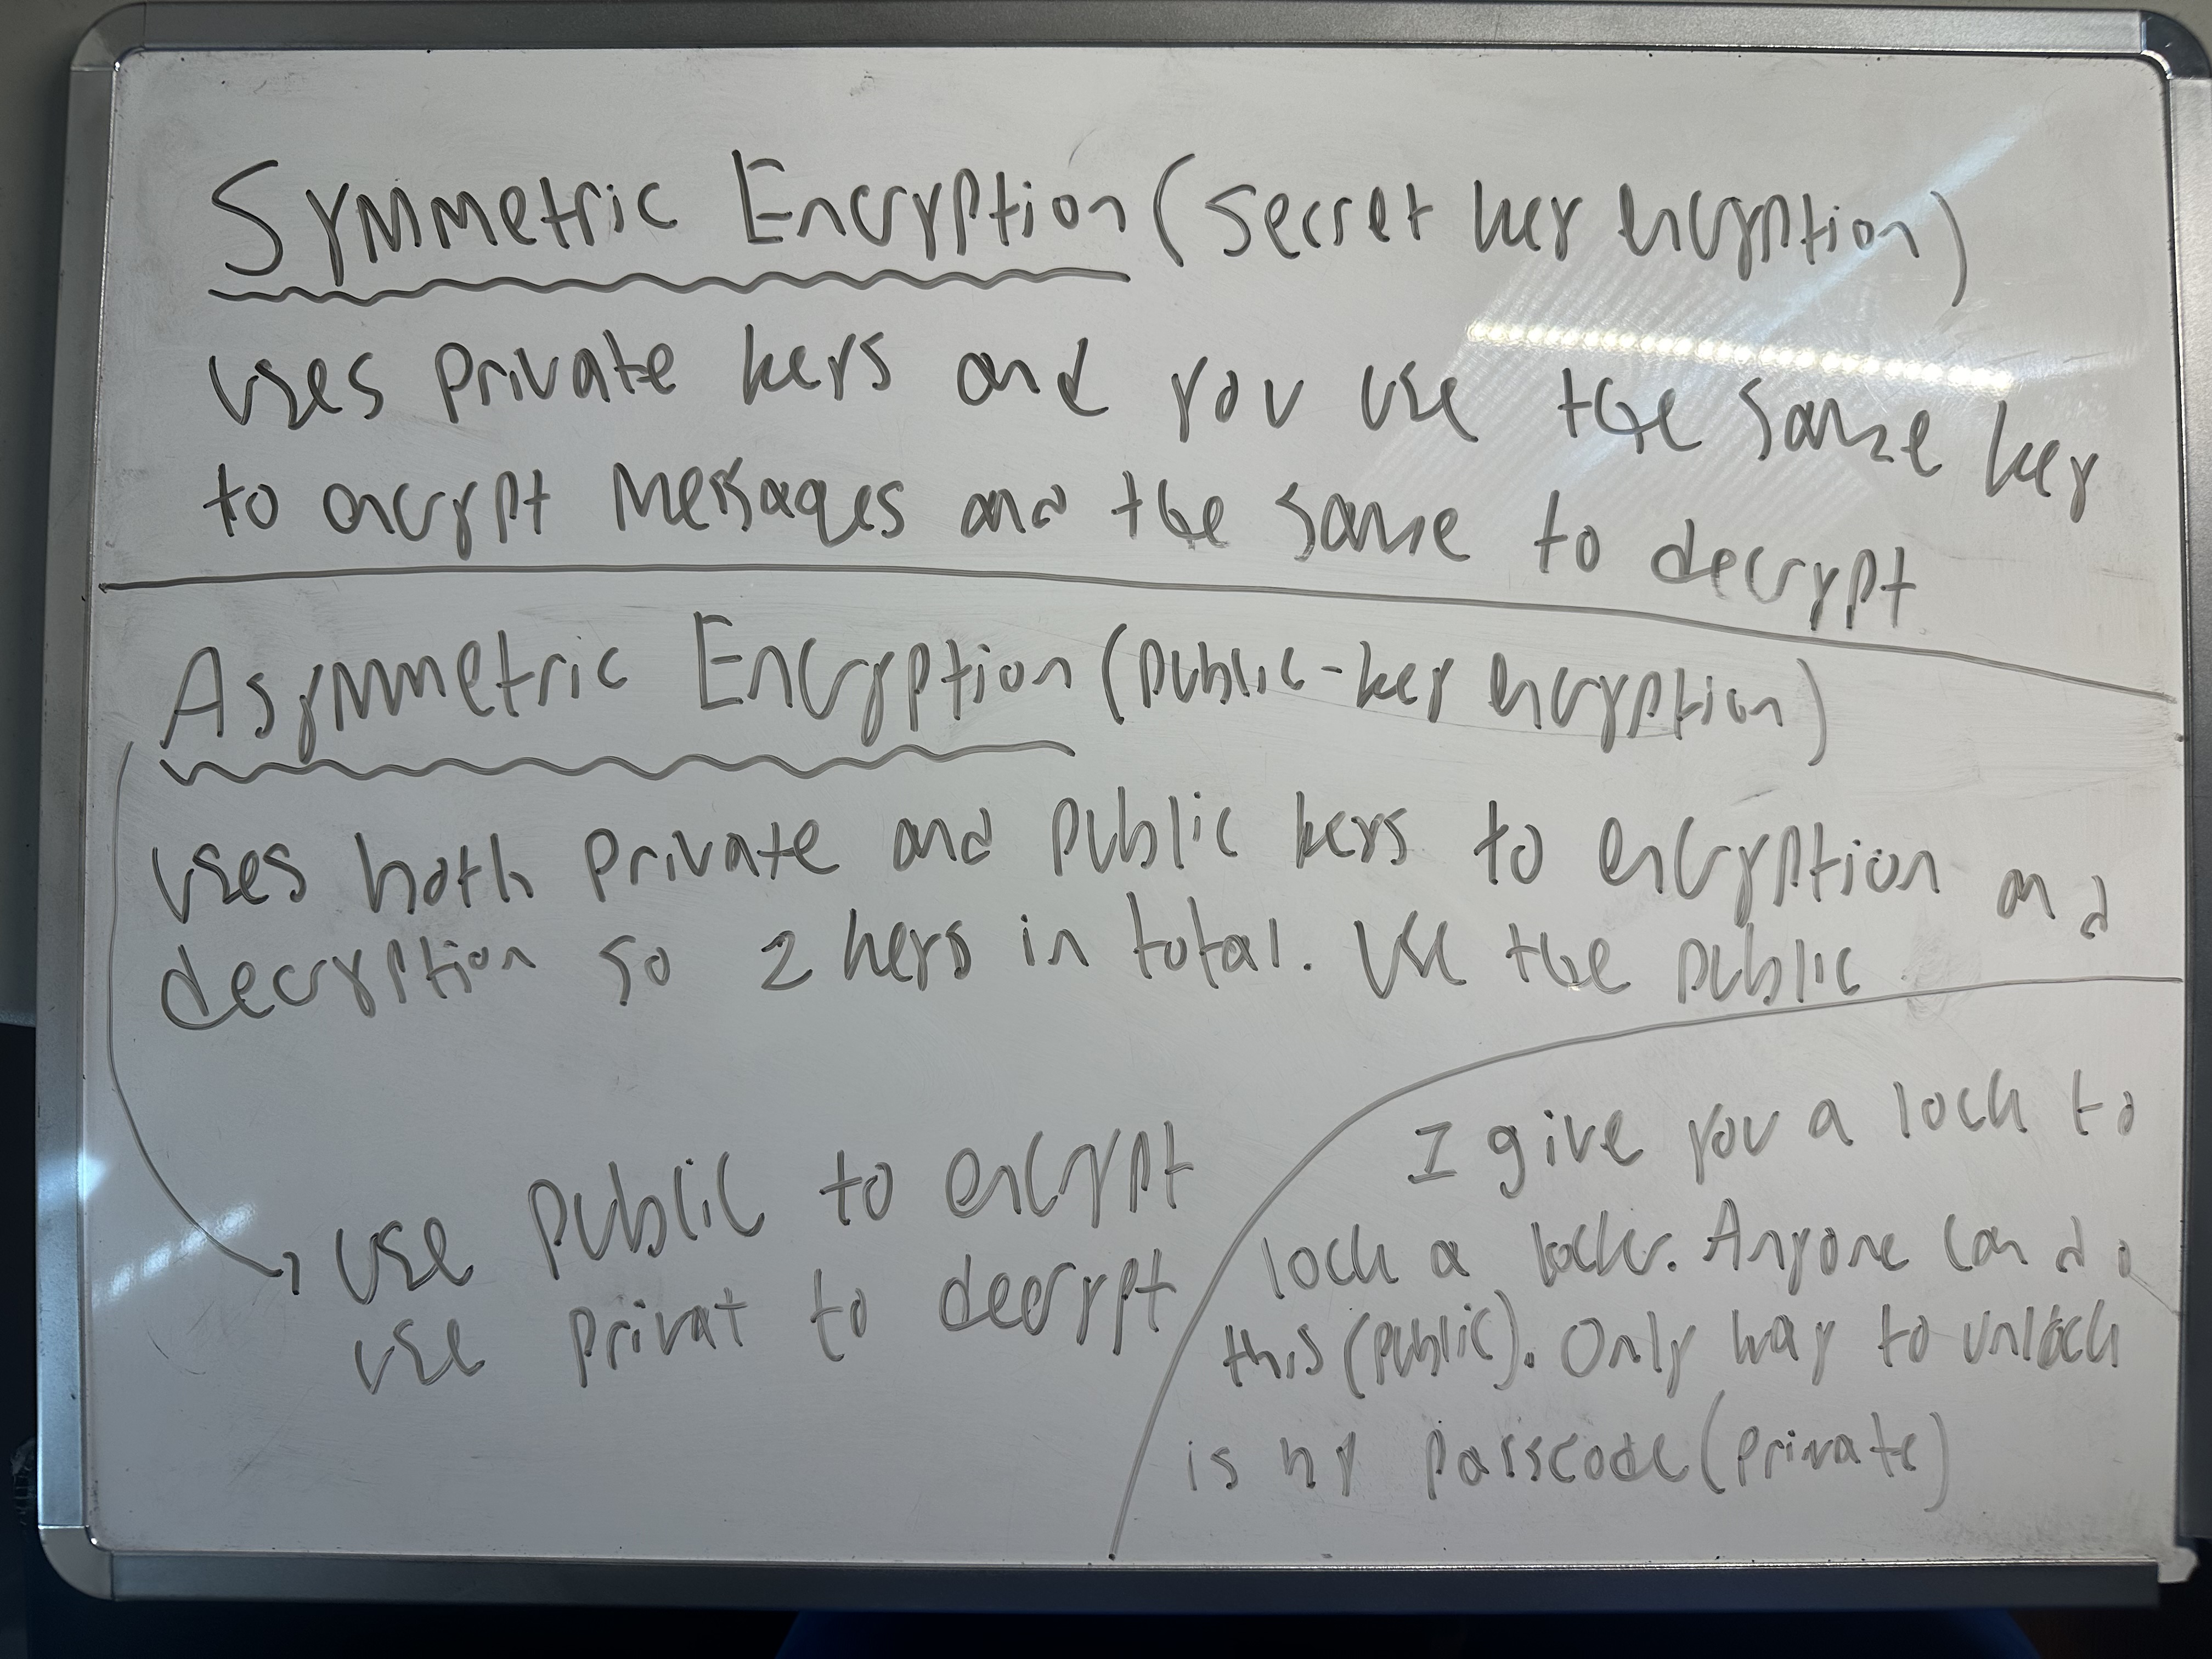 Symmetric Encryption (secret key encryption)
uses private keys and you use the same key
to encrypt messages and the same to decrypt
Asymmetric Encryption (public-key encryption)
uses both private and public keys to encryption and
decryption so 2 keys in total. Use the public
use public to encrypt
use privat to decrypt
I give you a lock to
lock a locker. Anyone can do
this (public). Only way to unlock
is my passcode (private)